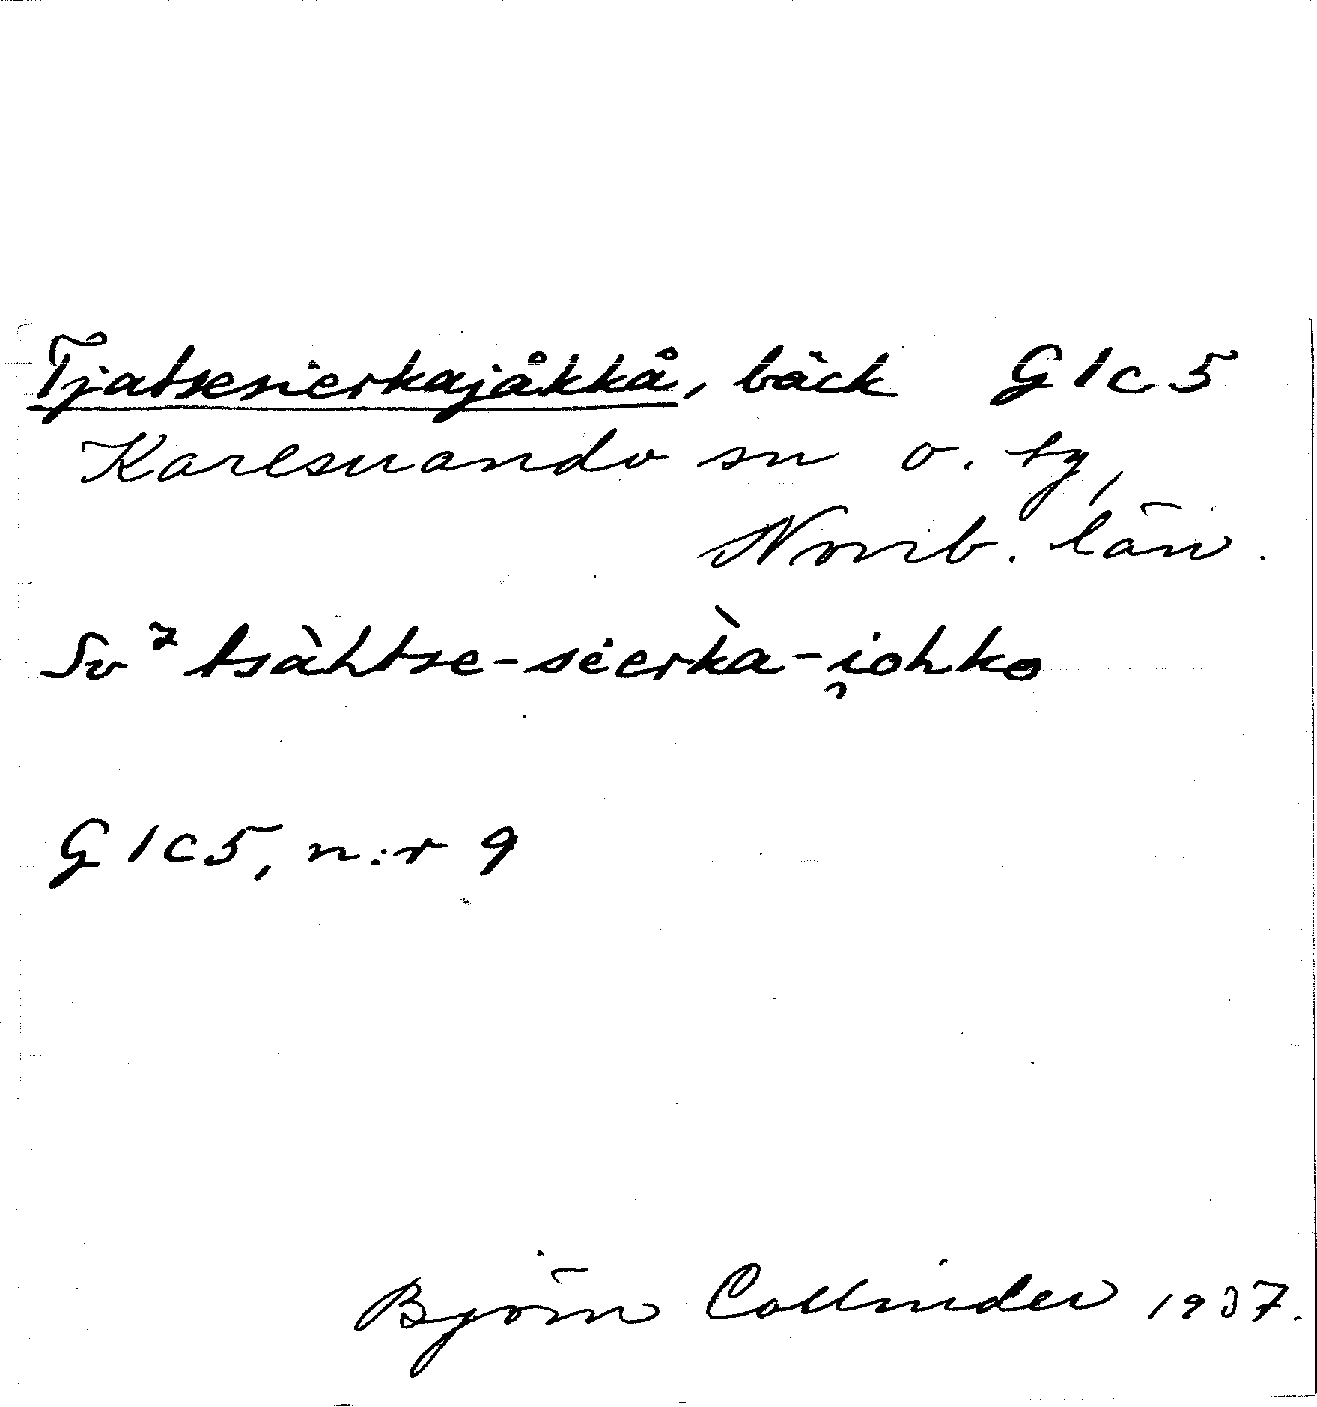 Tjatsesierkajåkkå, bäck G1c5
Karesuando sn o. tg,
Norrb. län.
Sv⁷ tsàhtse-sierkà-i̯ohko
G1c5, n:r 9
Björn Collinder 1937.